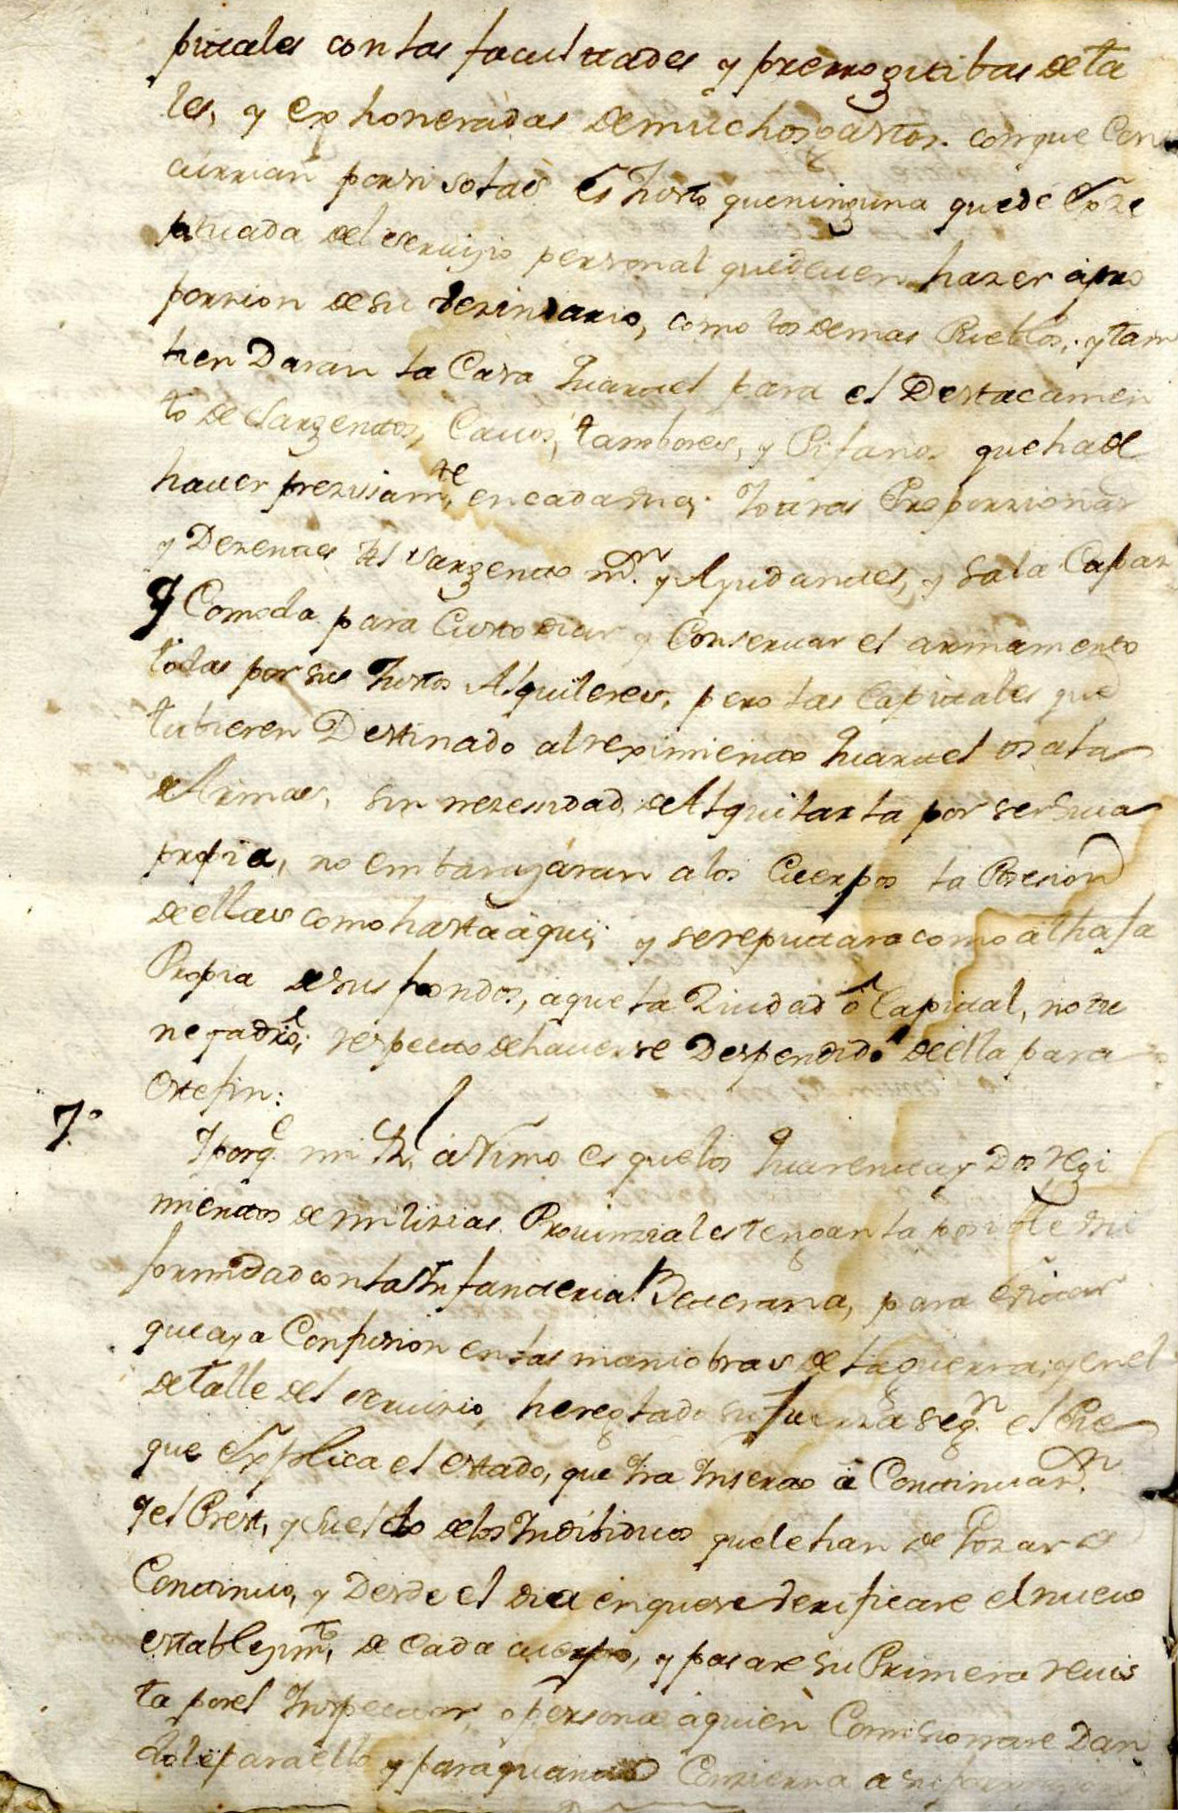 pitales con las facultades y prerrogatibas de ta
les, y exhoneradas de muchos gastos, con que con
currian por si solas es Justo que ninguna quede exze
ptuada del servizio personal que deuen hazer à pro
porzion de su vezindario, como los demas Pueblos, y tam
bien Daran la Casa Quartel para el Destacamen
to de Sargentos, Cauos, tambores, y Pifanos que ha de
hauer prezisamte, en cada una; Y otras Proporzionadas
y Dezentes al Sargento mr. y Ayudantes, y Sala Capaz
y Comoda para Custodiar y Conseruar el armamento
todas por sus Justos Alquileres, pero las Capitales que
tubieren Destinado al reximiento Quartel o sala
de Armas, sin nezesidad de Alquilarla por ser suia
propia, no embarazaran a los Cuerpos la Posesion
de ellas como hasta aqui; y se reputara como alhaja
Propia de sus fondos, a que la Ziudad ò Capital, no tie
ne ya dro, respecto de hauerse Desprendido de ella para
este fin:
7.º Y porq. mi Rl. animo es que los Quarenta y Dos regi
mientos de milizias Prouinziales tengan la posible uni
formidad con la Infanteria Veterana, para euitar
que aya Confusion en las maniobras de la guerra; y en el
detalle del seruizio, he reglado su fuerza segn. el Pie
que explica el estado, que ira Inserto à Continuazn.
y el Prest, y Sueldo de los Indibiduos que le han de Gozar de
Continuo, y Desde el dia en que se verificare el nueuo
establezimto, de cada cuerpo, y pasare su Primera reuis
ta por el Inspector, o persona à quien Comisionare Dan
dole para ello y para quanto Conzierna a su formazion